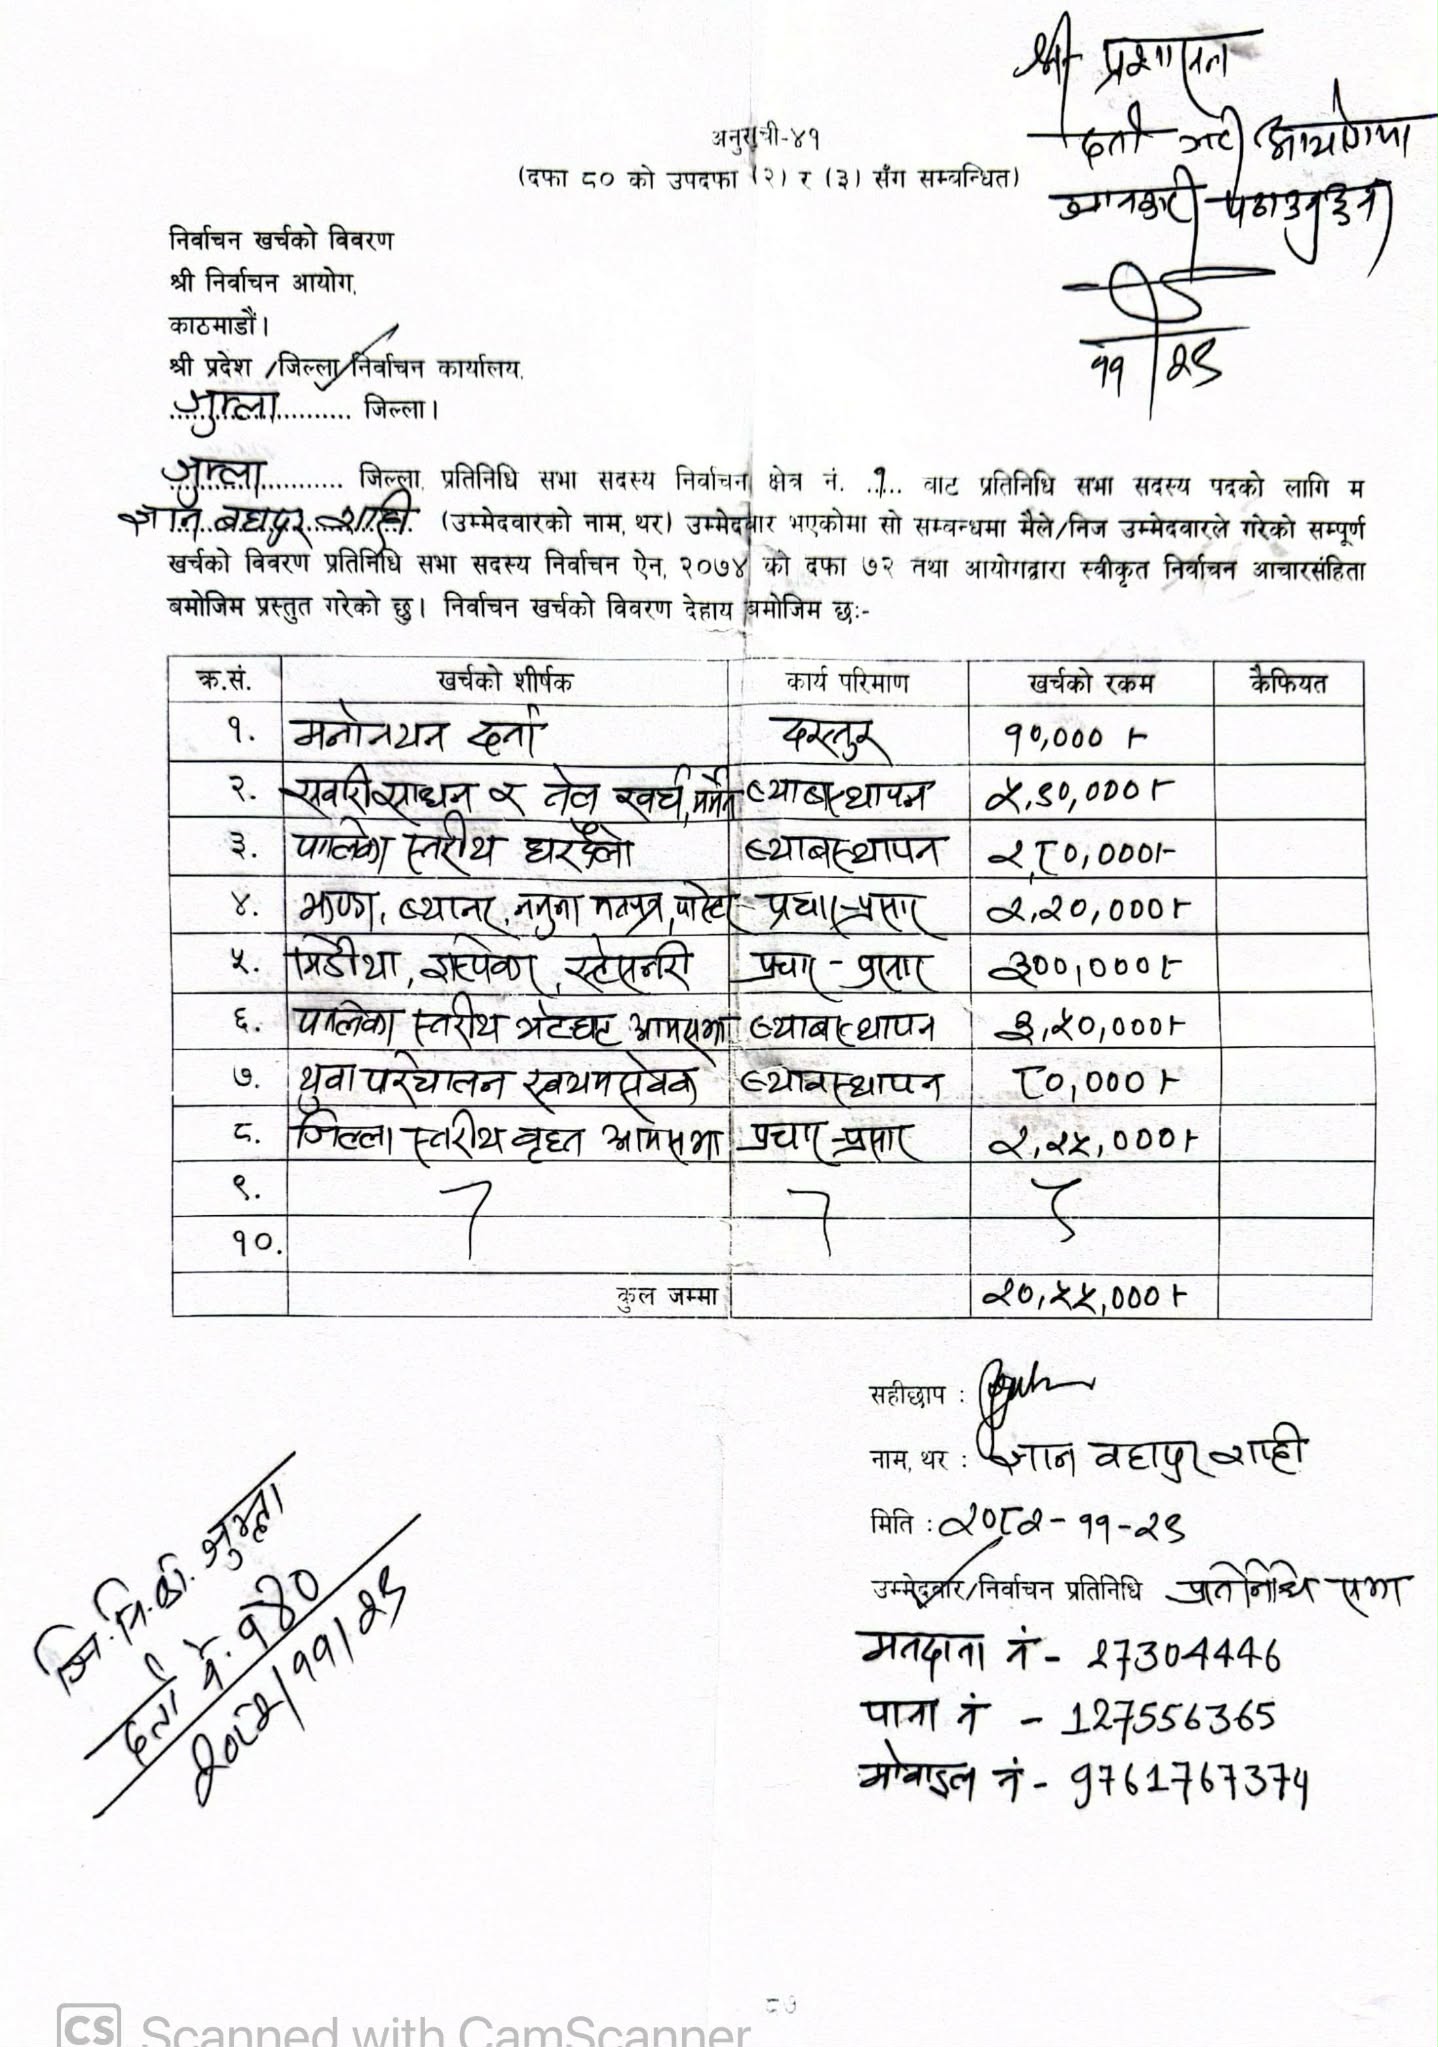 श्री प्रशासन
दर्ता गरी आयोगमा
जानकारी पठाउनुहुन
११/२९
अनुसूची-४१
(दफा ८० को उपदफा (२) र (३) सँग सम्बन्धित)
निर्वाचन खर्चको विवरण
श्री निर्वाचन आयोग,
काठमाडौं।
श्री प्रदेश /जिल्ला निर्वाचन कार्यालय,
जुम्ला जिल्ला।
जुम्ला जिल्ला, प्रतिनिधि सभा सदस्य निर्वाचन क्षेत्र नं. १ वाट प्रतिनिधि सभा सदस्य पदको लागि म
ज्ञान बहादुर शाही (उम्मेदवारको नाम, थर) उम्मेदवार भएकोमा सो सम्वन्धमा मैले/निज उम्मेदवारले गरेको सम्पूर्ण
खर्चको विवरण प्रतिनिधि सभा सदस्य निर्वाचन ऐन, २०७४ को दफा ७२ तथा आयोगद्वारा स्वीकृत निर्वाचन आचारसंहिता
बमोजिम प्रस्तुत गरेको छु। निर्वाचन खर्चको विवरण देहाय बमोजिम छः-
क्र.सं. खर्चको शीर्षक कार्य परिमाण खर्चको रकम कैफियत
१. मनोनयन दर्ता दस्तुर १०,००० ।-
२. सवारी साधन र तेल खर्च, मर्मत ब्याबस्थापन ५,९०,००० ।-
३. पालिका स्तरीय घरदैलो ब्याबस्थापन २,८०,००० ।-
४. झण्डा, ब्यानर, नमुना मतपत्र, पोस्टर प्रचार-प्रसार २,२०,००० ।-
५. मिडीया, स्टेसनरी प्रचार - प्रसार ३००,००० ।-
६. पालिका स्तरीय भेटघाट आमसभा ब्याबस्थापन ३,५०,००० ।-
७. युवा परिचालन स्वयमसेवक ब्यावस्थापन ८०,००० ।-
८. जिल्ला स्तरीय वृहत आमसभा प्रचार-प्रसार २,२५,००० ।-
९.
१०.
कुल जम्मा २०,५५,००० ।-
सहीछाप :
नाम, थर : ज्ञान बहादुर शाही
मिति : २०८२-११-२९
उम्मेदवार/निर्वाचन प्रतिनिधि प्रतिनिधि सभा
मतदाता नं - 27304446
पाना नं - 127556365
मोबाइल नं - 9761767374
जि.नि.का. जुम्ला
दर्ता नं. १९०
२०८२/११/२९
८७
CS Scanned with CamScanner